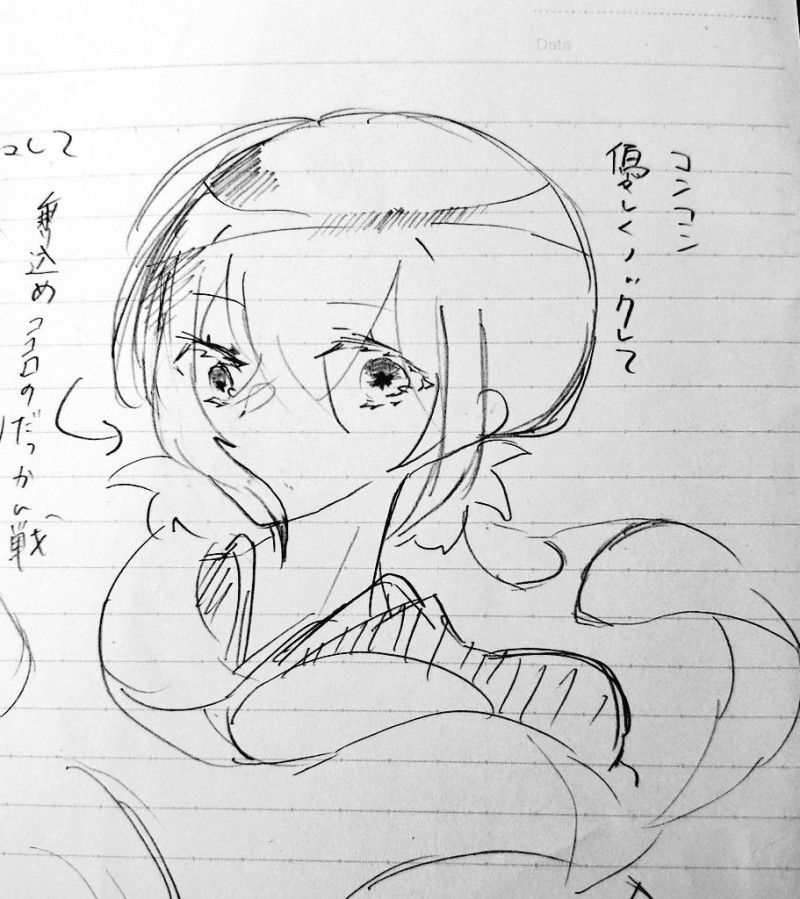 Data
コンコン
優しくノックして
乗込め ココロのだっかい戦
して